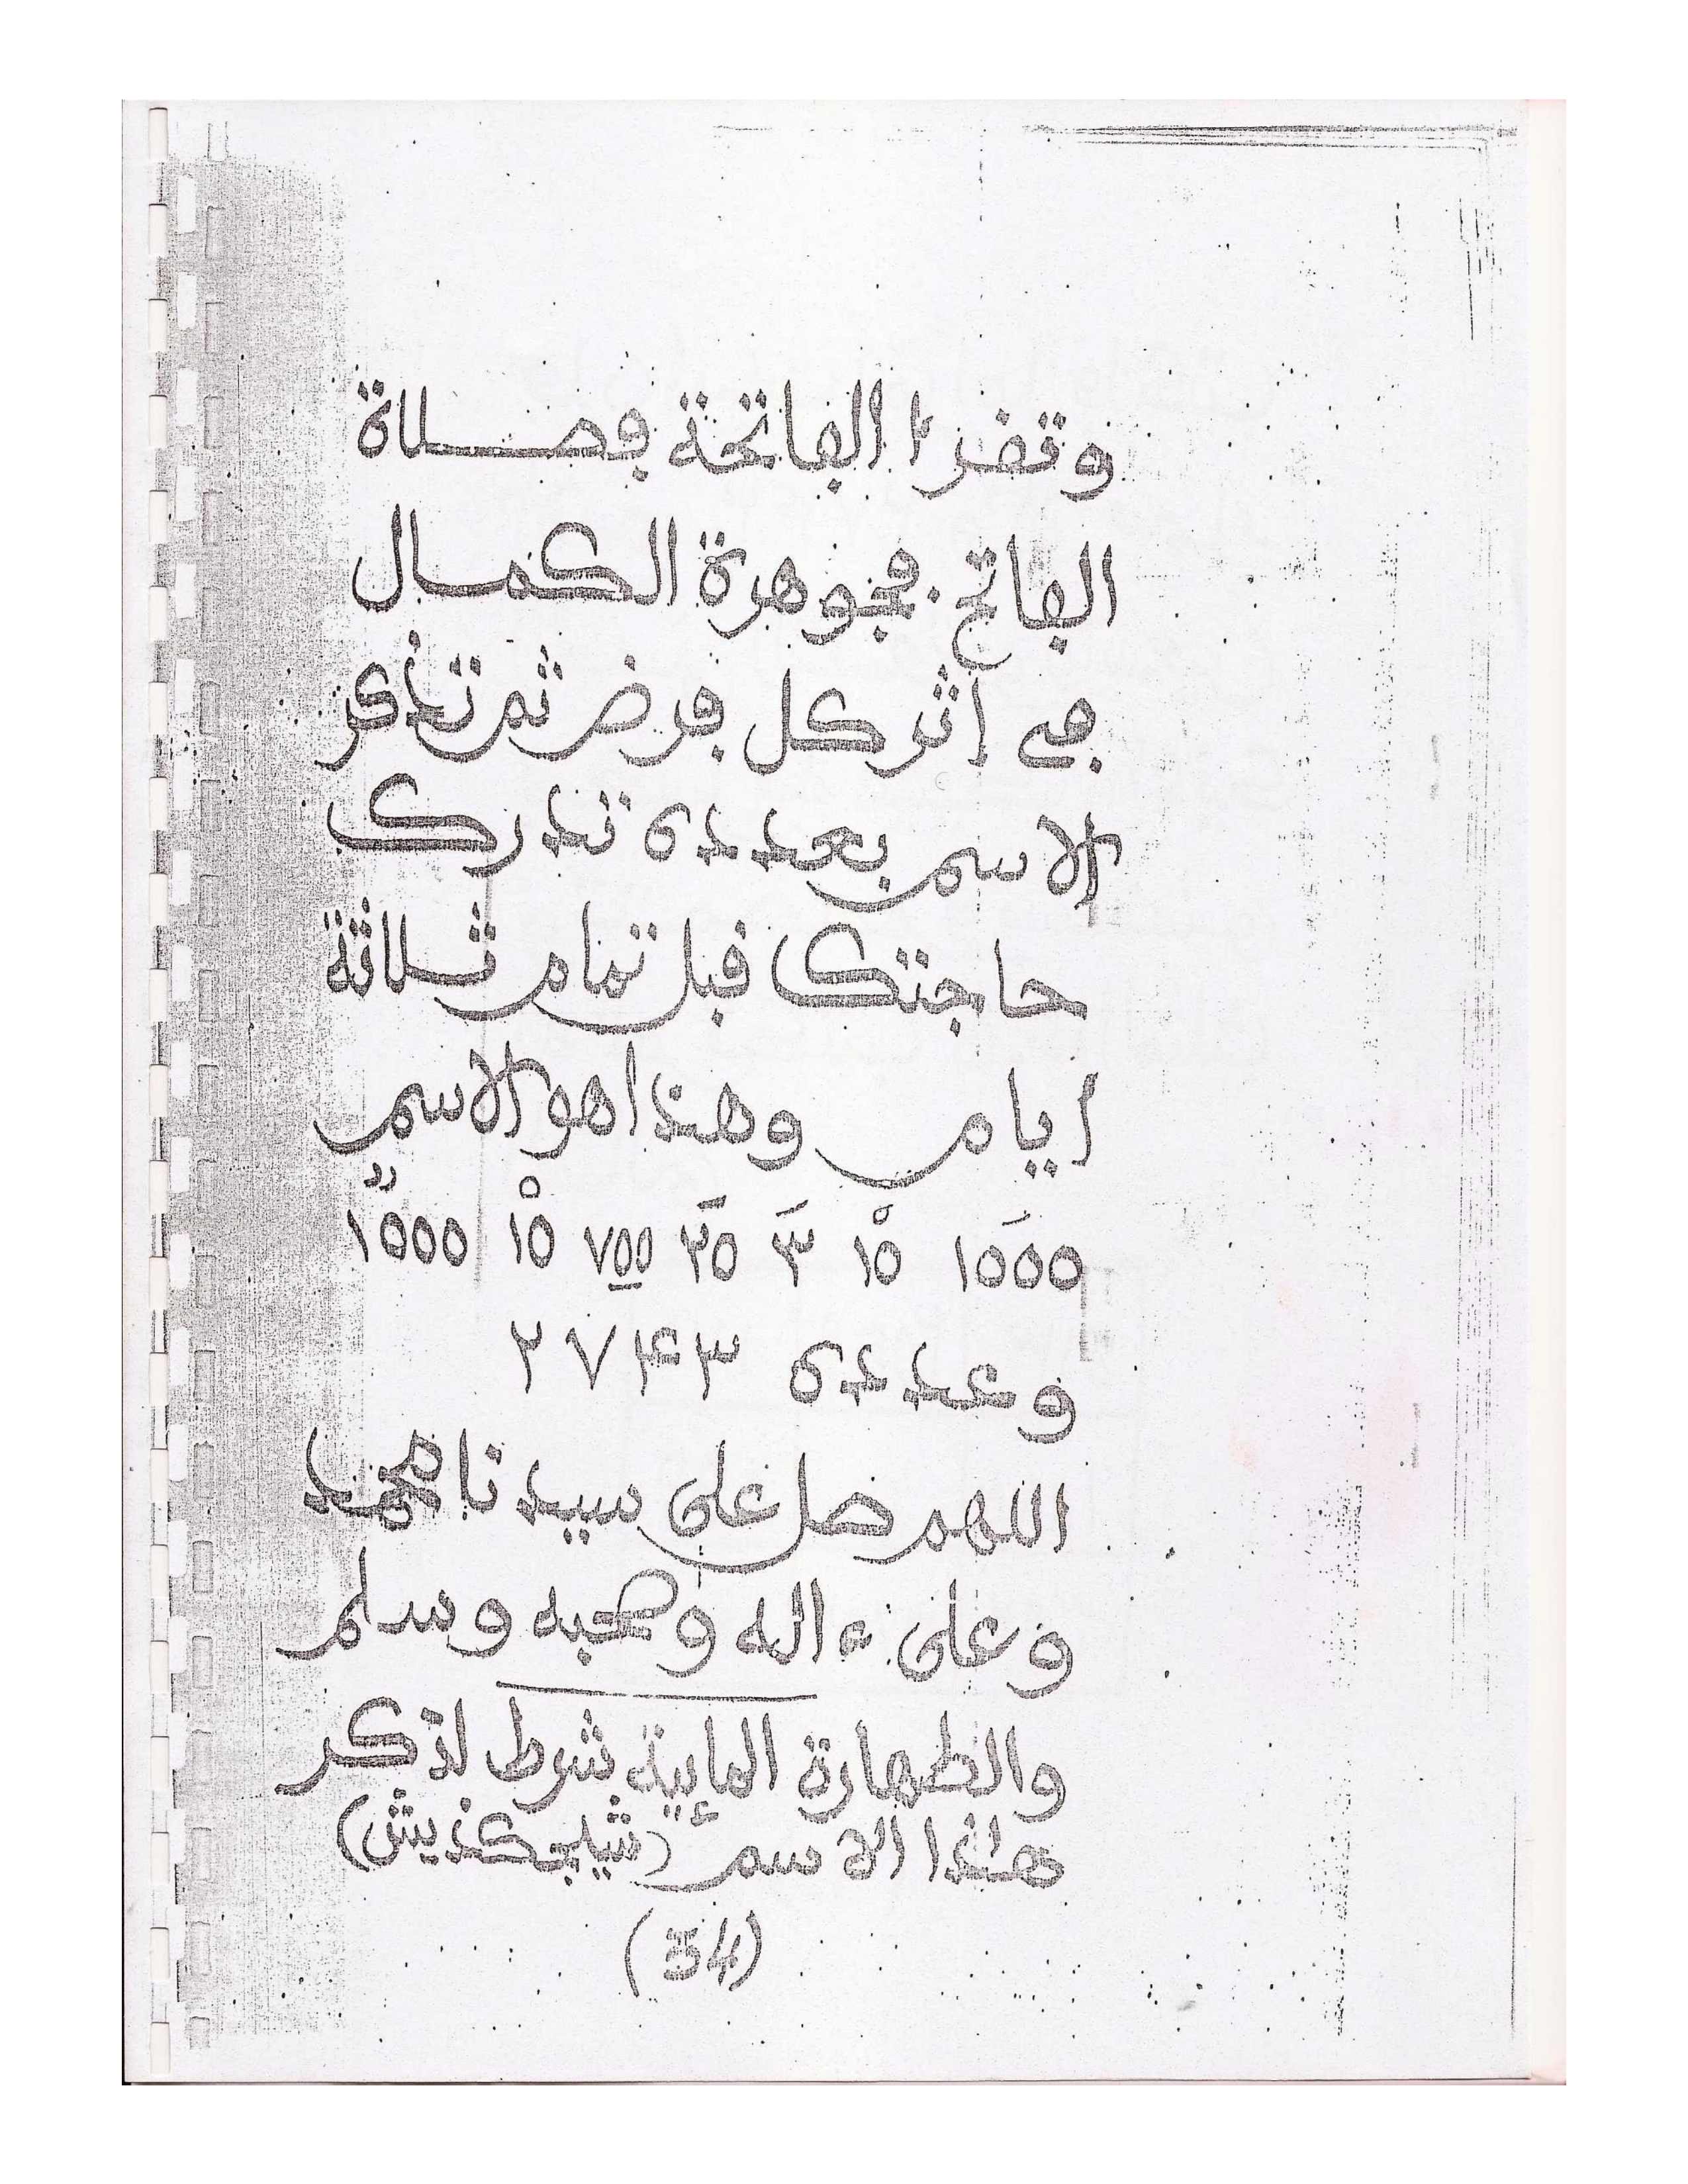 وتقرأ الفاتحة فصلاة
الفاتح. فجوهرة الكمال
في أثر كل فرض ثم تذكر
الاسم بعدده تدرك
حاجتك قبل تمام ثلاثة
ايام وهذا هو الاسم
١٥٥٥ ١٥ ٣ ٣٥ ٧٥٥ ١٥ ١٥٥٥
وعدده ٢٧٤٣
اللهم صل على سيدنا محمد
وعلى ءاله وصحبه وسلم
والطهارة المائية شرط لذكر
هاذا الاسم (شيلجكذيش)
(34)